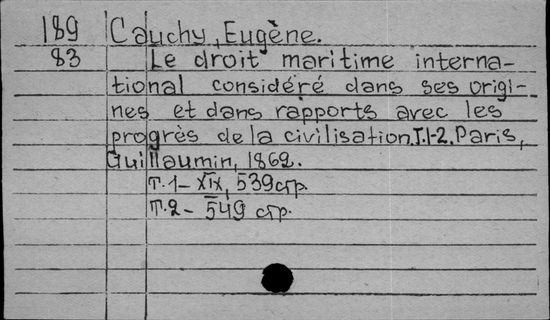 189 Cauchy, Eugène.
83 Le droit maritime interna-
tional considéré dans ses origi-
nes et dans rapports avec les
progrès de la civilisation. T.1-2. Paris,
Guillaumin, 1862.
Т.1 – XIX, 539 стр.
Т.2 – 549 стр.